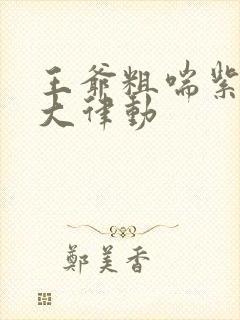 王爷粗喘紫
大律动
鄭美香